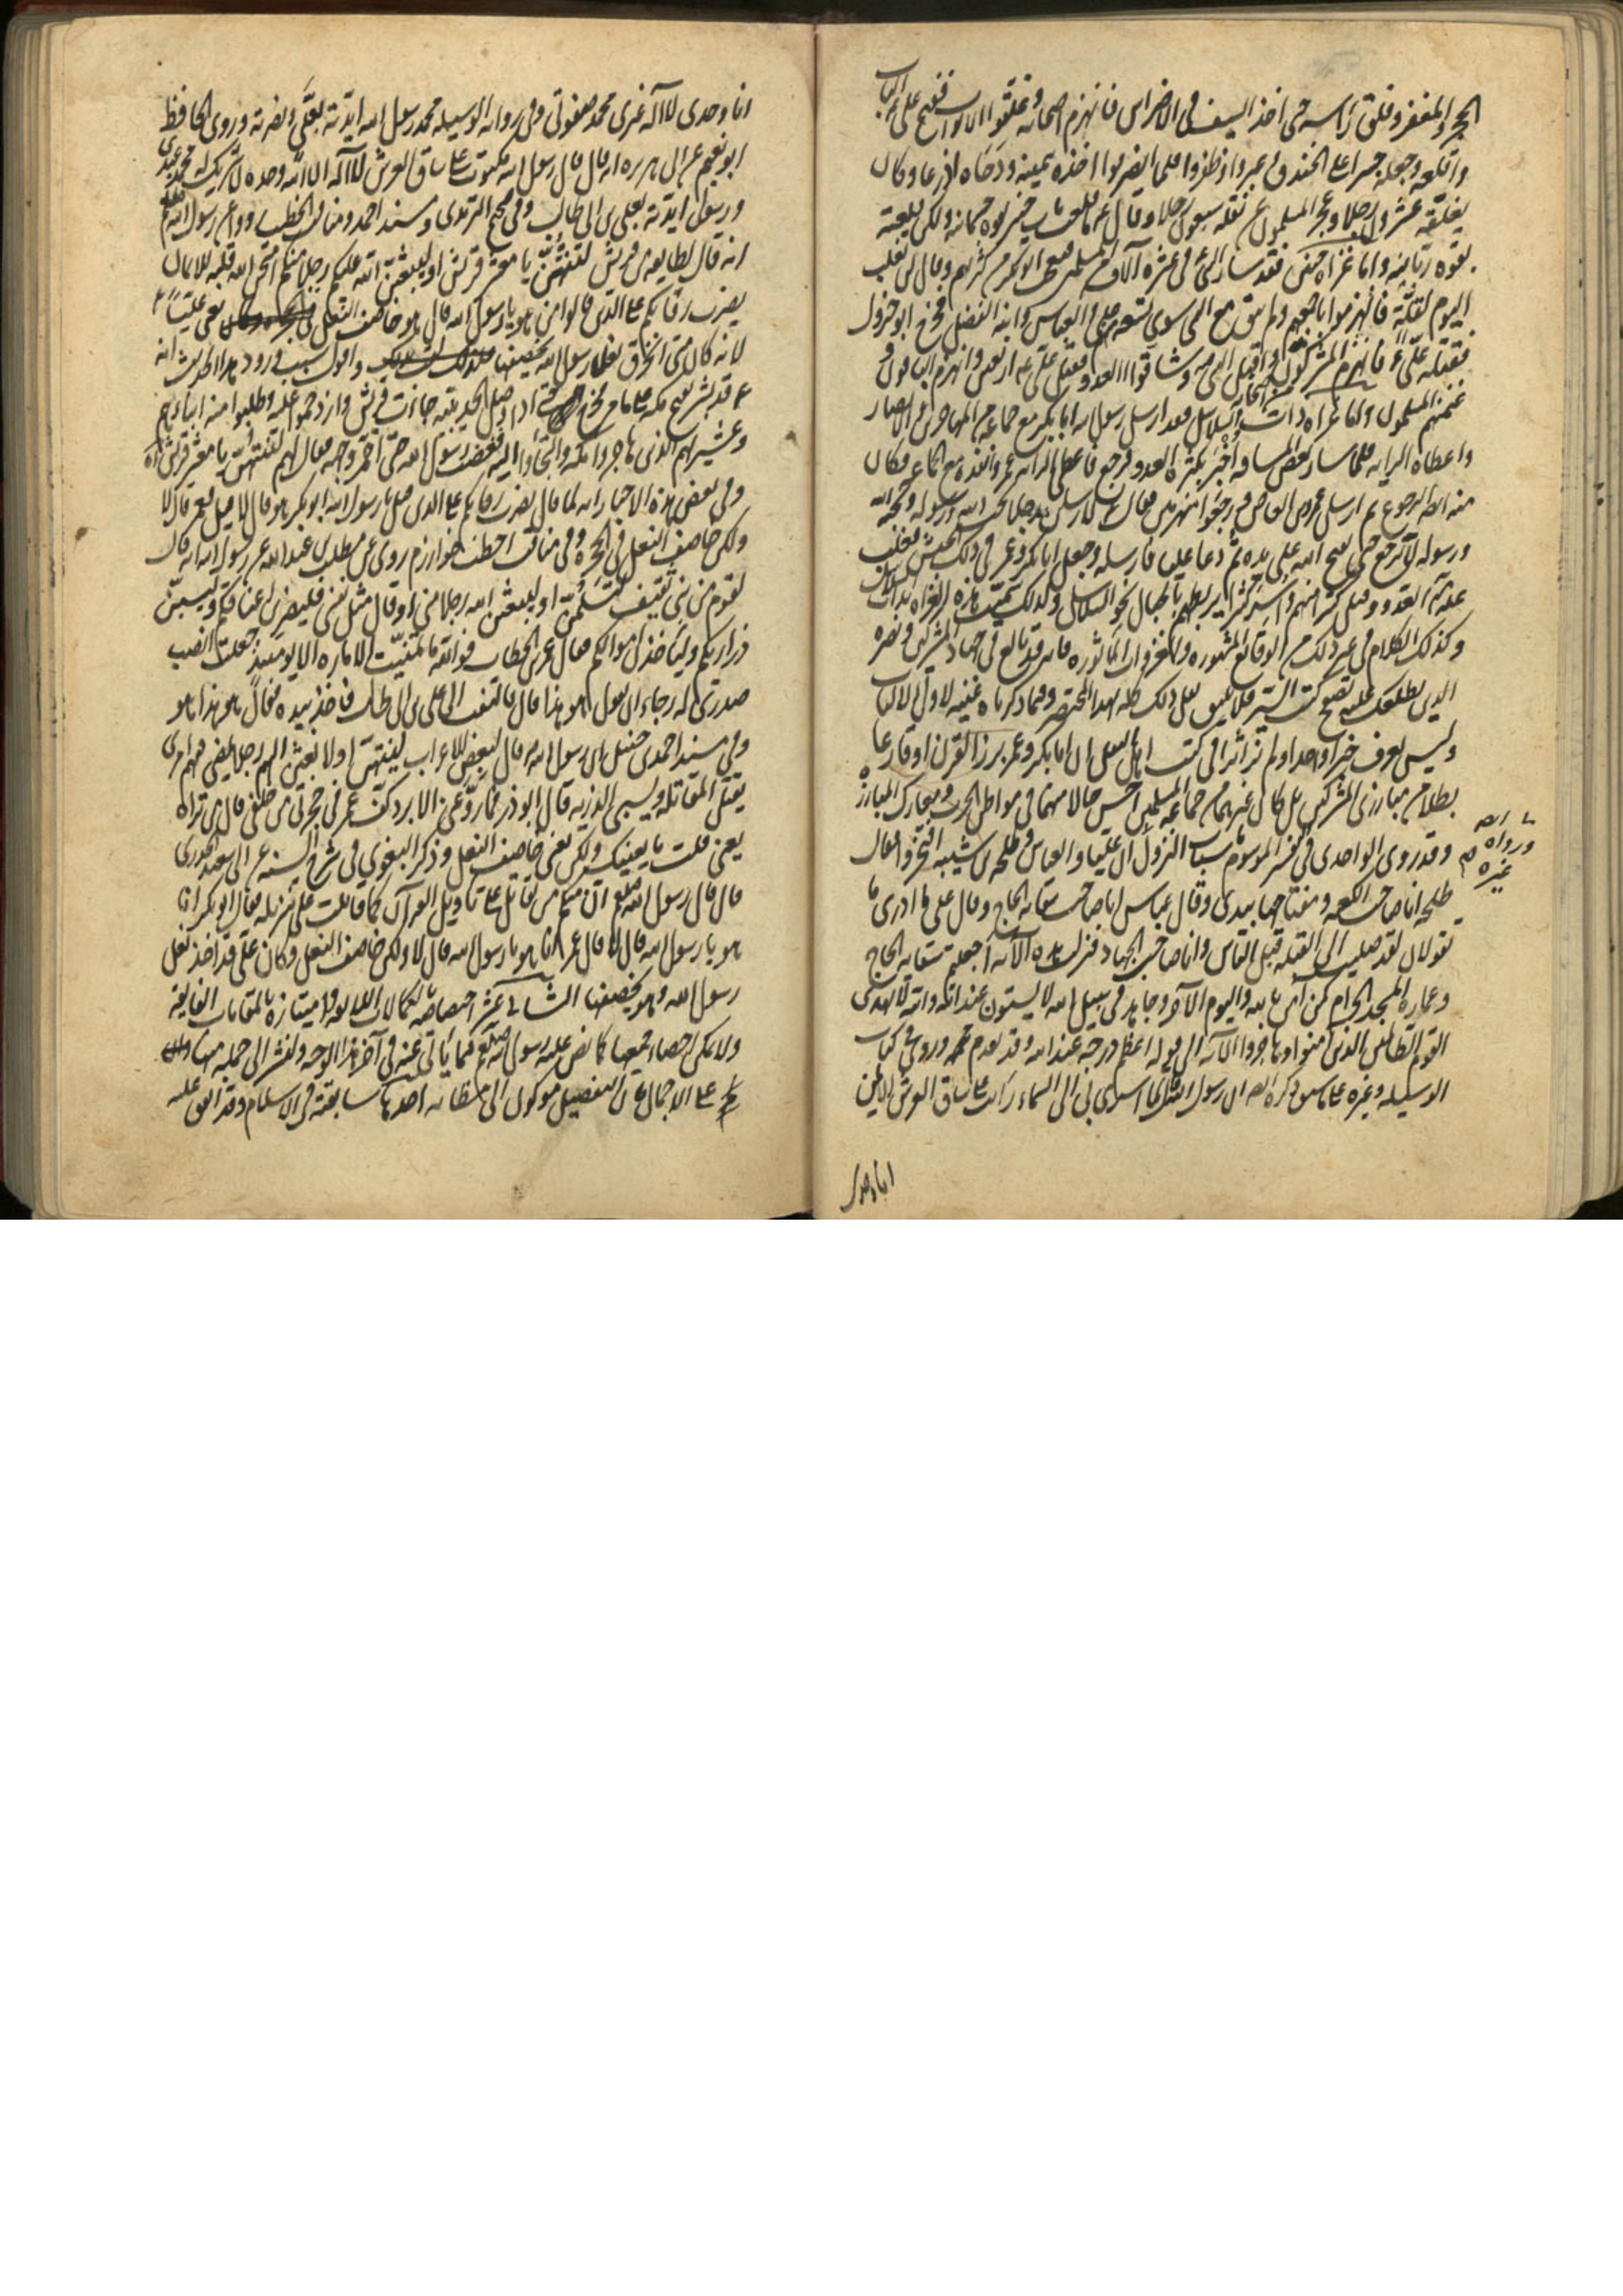 الحجر والمغفر وفلق راسه حتى اخذ السيف في الاضراس فانهزم اصحابه وغلقوا الابواب ففتح علي ع الباب
واقتلعه وجعله جسرا على الخندق وعبروا وظفروا فلما انصرفوا اخذه بيمينه ودحاه اذرعا وكان
يغلقه عشرون رجلا وعجز المسلمون عن نقله سبعون رجلا وقال ع ما قلعت باب خيبر بقوة جسمانية ولكن قلعته
بقوة ربانية واما غزاة حنين فقد سار النبي في عشرة آلاف من المسلمين فتعجب ابوبكر من كثرتهم وقال لن نغلب
اليوم لقلة فانهزموا باجمعهم ولم يبق مع النبي سوى تسعة علي والعباس وابنه الفضل فخرج ابو جرول
فقتله علي ع فانهزم المشركون واقبل النبي وساقوا العدو فقتل علي ع اربعين وانهزم الباقون و
غنمهم المسلمون واما غزاة ذات السلاسل فقد ارسل رسول الله ابابكر مع جماعة من المهاجرين والانصار
واعطاه الراية فلما سار بعض المسافة اخبر بكثرة العدو فرجع فاعطى الراية عمر وانفذه مع الجماعة وكان
منه الرجوع ثم ارسل عمرو بن العاص فرجعوا منهزمين فقال لارسلن رجلا يحب الله ورسوله ويحبه الله
ورسوله لا يرجع حتى يفتح الله على يده ثم دعا عليا فارسله وجعل ابابكر وعمر في ذلك الجيش فغلب
على العدو وقتل كثيرا منهم واسر كثيرا يربطهم بالحبال نحو السلاسل ولذلك سميت هذه الغزاة بذات السلاسل
وكذلك الكلام في غير ذلك من الوقائع المشهورة والغزوات الماثورة فانه قد بالغ في جهاد المشركين ونصرة
الدين يطلعك عليه تصفح كتب السير فلا يليق نقل ذلك كله بهذا المختصر وفيما ذكرناه غنية لاولي الالباب
وليس يعرف خبرا واحدا ولم نر اثرا في كتب اهل النقل ان ابابكر وعمر برز القرن او قارعا
بطلا من مبارزي المشركين بل كان غيرهما من جماعة المسلمين احسن حالا منهما في مواطن الحرب ومعارك المبارزة
وقد روى الواحدي في تفسيره الموسوم باسباب النزول ان عليا والعباس وطلحة بن شيبة افتخروا فقال
ورواه
غيره
طلحة انا صاحب الكعبة ومفتاحها بيدي وقال عباس انا صاحب سقاية الحاج وقال علي ما ادري ما
تقولان لقد صليت الى القبلة قبل الناس وانا صاحب الجهاد فنزلت هذه الآية أجعلتم سقاية الحاج
وعمارة المسجد الحرام كمن آمن بالله واليوم الآخر وجاهد في سبيل الله لا يستوون عند الله والله لا يهدي
القوم الظالمين الذين آمنوا وهاجروا الآية الى قوله اعظم درجة عند الله وقد تقدم وروي في كتاب
الوسيلة وغيره ان رسول الله قال لما اسري بي الى السماء رايت على ساق العرش الايمن
انا وحدي
انا وحدي لا اله غيري محمد صفوتي وفي رواية الوسيلة محمد رسول الله ايدته بعلي ونصرته وروى الحافظ
ابو نعيم عن ابي هريرة انه قال قال رسول الله مكتوب على ساق العرش لا اله الا الله وحده لا شريك له محمد عبدي
ورسولي ايدته بعلي بن ابي طالب وفي صحيح الترمذي ومسند احمد ومناقب الخطيب عن رسول الله
انه قال لطايفة من قريش لتنتهن يا معشر قريش او ليبعثن الله عليكم رجلا منكم امتحن الله قلبه للايمان
يضرب رقابكم على الدين قالوا من هو يا رسول الله قال هو خاصف النعل يعني عليا ع
لانه كان متى انخرق نعل رسول الله يخصفها واقول سبب ورود هذا الحديث انه
وعشيرتهم الذين هاجروا مكة والتجأوا اليه فغضب رسول الله حتى احمر وجهه فقال لهم لتنتهن يا معشر قريش
وفي بعض هذه الاخبار انه لما قال يضرب رقابكم على الدين قيل يا رسول الله ابو بكر هو قال لا قيل فعمر قال لا
ولكن خاصف النعل في الحجرة وفي مناقب اخطب خوارزم روى عن مطلب بن عبدالله عن رسول الله انه قال
لقوم من بني ثقيف لتسلمن او ليبعثن الله رجلا مني او قال مثل نفسي فليضربن اعناقكم وليسبين
ذراريكم وليأخذن اموالكم فقال عمر بن الخطاب فوالله ما تمنيت الامارة الا يومئذ جعلت انصب
صدري له رجاء ان يقول هو هذا قال فالتفت الى علي بن ابي طالب فاخذ بيده فقال هو هذا هو
وفي مسند احمد بن حنبل ان رسول الله قال لبعض الاعراب لينتهن او لابعثن اليهم رجلا يمضي فيهم امري
يقتل المقاتلة ويسبي الذرية قال ابو ذر فما روعني الا برد كف عمر في حجزتي من خلفي قال من تراه
يعني قلت ما يعنيك ولكن يعني خاصف النعل وذكر البغوي في شرح السنة عن ابي سعيد الخدري
قال قال رسول الله صلعم ان منكم من يقاتل على تاويل القرآن كما قاتلت على تنزيله فقال ابو بكر انا
هو يا رسول الله قال لا قال عمر انا هو يا رسول الله قال لا ولكن خاصف النعل وكان علي قد اخذ نعل
رسول الله وهو يخصفها الثاني عشر اختصاصه بالكمالات العالية وامتيازه بالمقامات الفايقة
ولا يمكن احصاء جميعها كما نص عليه رسول الله صلعم فيما ياتي عنه في آخر هذا الوجه ولنشر الى جملة منها
على الاجمال فان التفصيل موكول الى مظانه احدها سابقته في الاسلام وقد اتفق عليه